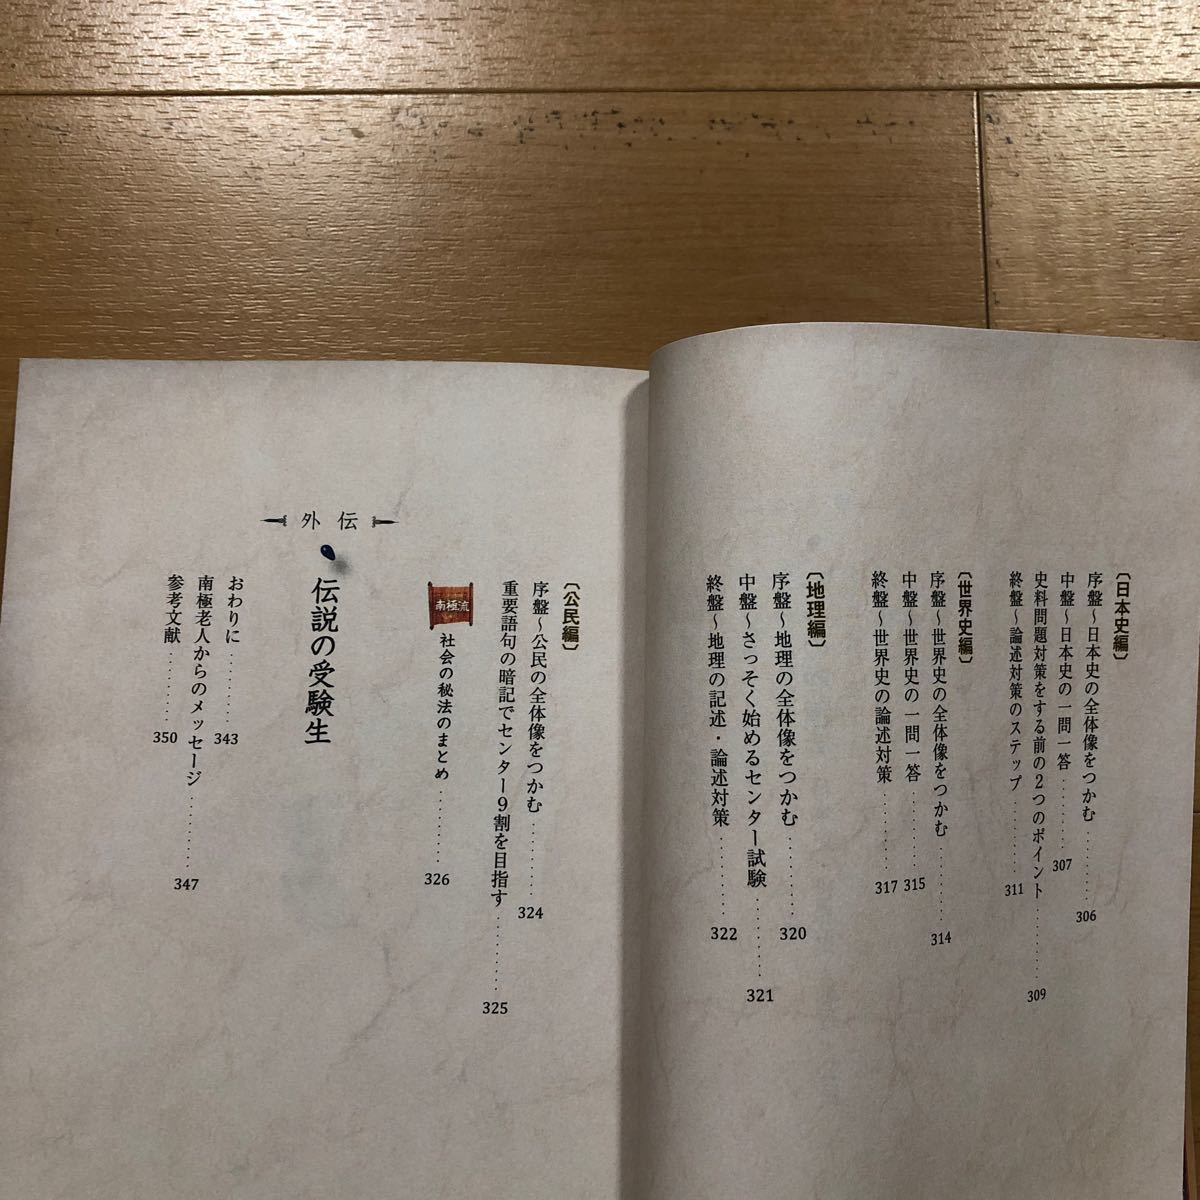 〔日本史編〕
序盤～日本史の全体像をつかむ………306
中盤～日本史の一問一答………307
史料問題対策をする前の2つのポイント………309
終盤～論述対策のステップ………311
〔世界史編〕
序盤～世界史の全体像をつかむ………314
中盤～世界史の一問一答………315
終盤～世界史の論述対策………317
〔地理編〕
序盤～地理の全体像をつかむ………320
中盤～さっそく始めるセンター試験………321
終盤～地理の記述・論述対策………322
〔公民編〕
序盤～公民の全体像をつかむ………324
重要語句の暗記でセンター9割を目指す………325
南極流 社会の秘法のまとめ………326
外伝
伝説の受験生
おわりに………343
南極老人からのメッセージ………347
参考文献………350